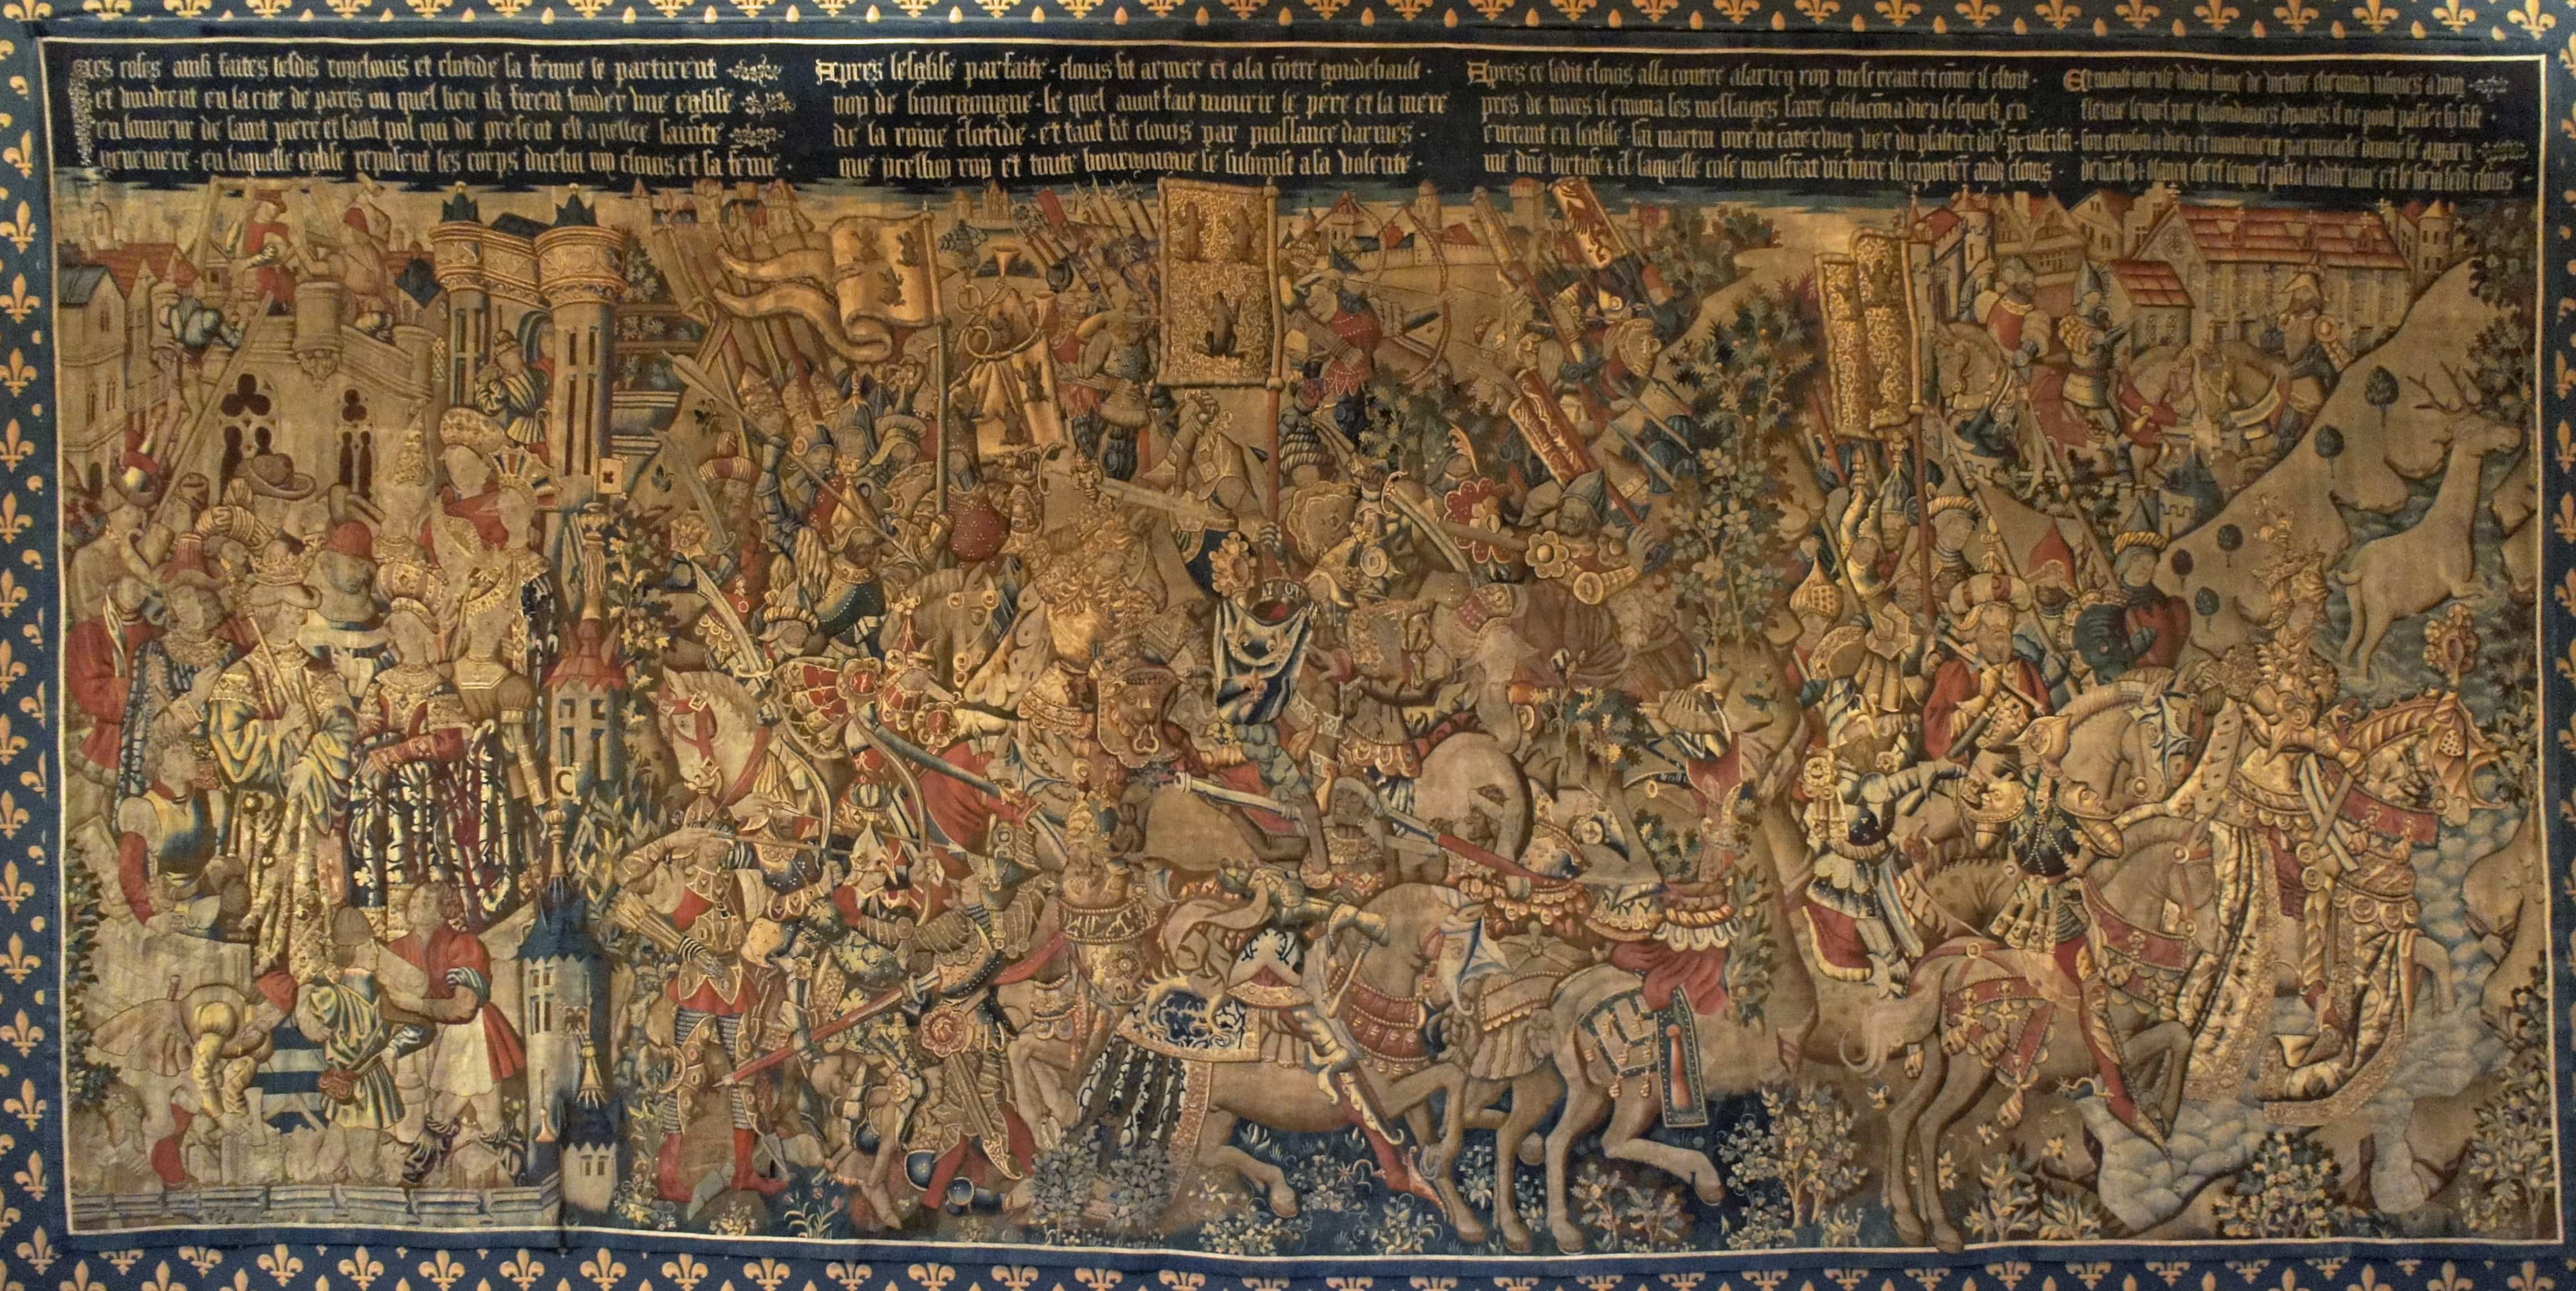 Ces coses ainsi faites lesdis roy clouis et clotide sa femme se partirent
et vindrent en la cite de paris ou quel lieu ilz firent fonder vne eglise
en lonneur de saint piere et saint pol qui de present est apellee sainte
geneuiere · en laquelle eglise reposent les corps dicelui roy clouis et sa feme ·
Apres leglise parfaite · clouis fit armer et ala cōtre goudebault ·
roy de bourgongne · le quel auoit fait mourir le pere et la mere
de la roine clotide · et tant fit clouis par puissance darmes ·
que ycelluy roy et toute bourgongne se submist a sa volente ·
Apres ce ledit clouis alla contre alaricq roy mescreant et cōme il estoit ·
pres de tours il enuoia ses messaiges faire oblacōn a dieu lesquelz en ·
entrant en leglise · sāī martin
me dn̄e virtute laquelle cose monstrāt victoire ilz raporterēt audi clouis ·
Et
fleuue lequel par habondances dyaues il ne peut passer
son oroison a dieu et par miracle diuine se aparu
deuāt lui blancq cherf lequel passa ladite iaue et le sieui ledit clouis